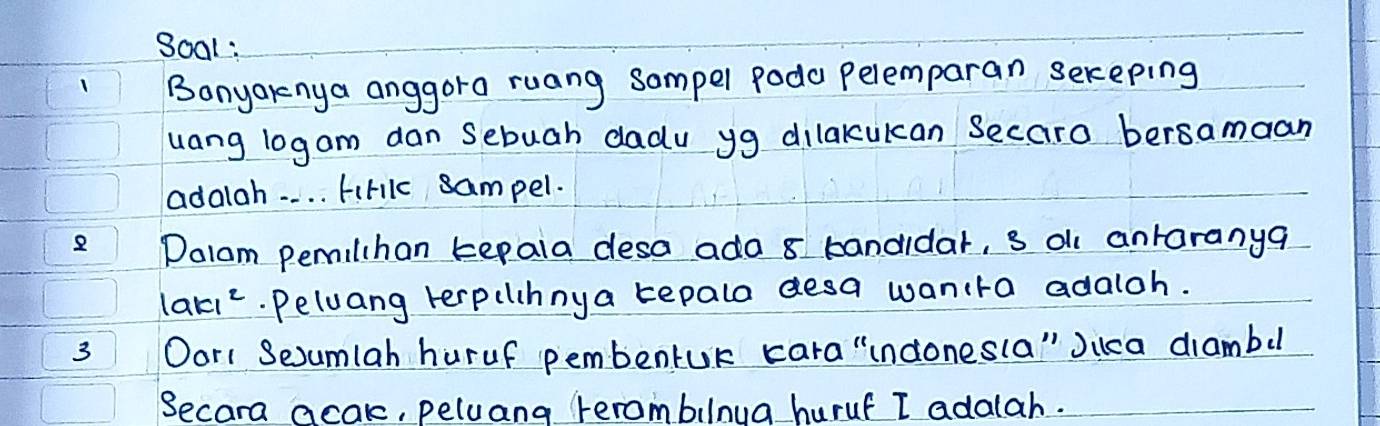 Soal:
1 Banyaknya anggota ruang sampel pada pelemparan sekeping
uang logam dan sebuah dadu yg dilakukan secara bersamaan
adalah .... titik sampel.
2 Dalam pemilihan kepala desa ada 5 kandidat, 3 di antaranya
laki². Peluang terpilihnya kepala desa wanita adalah.
3 Dari sejumlah huruf pembentuk kata "indonesia" Jika diambil
secara acak, peluang terambilnya huruf I adalah.